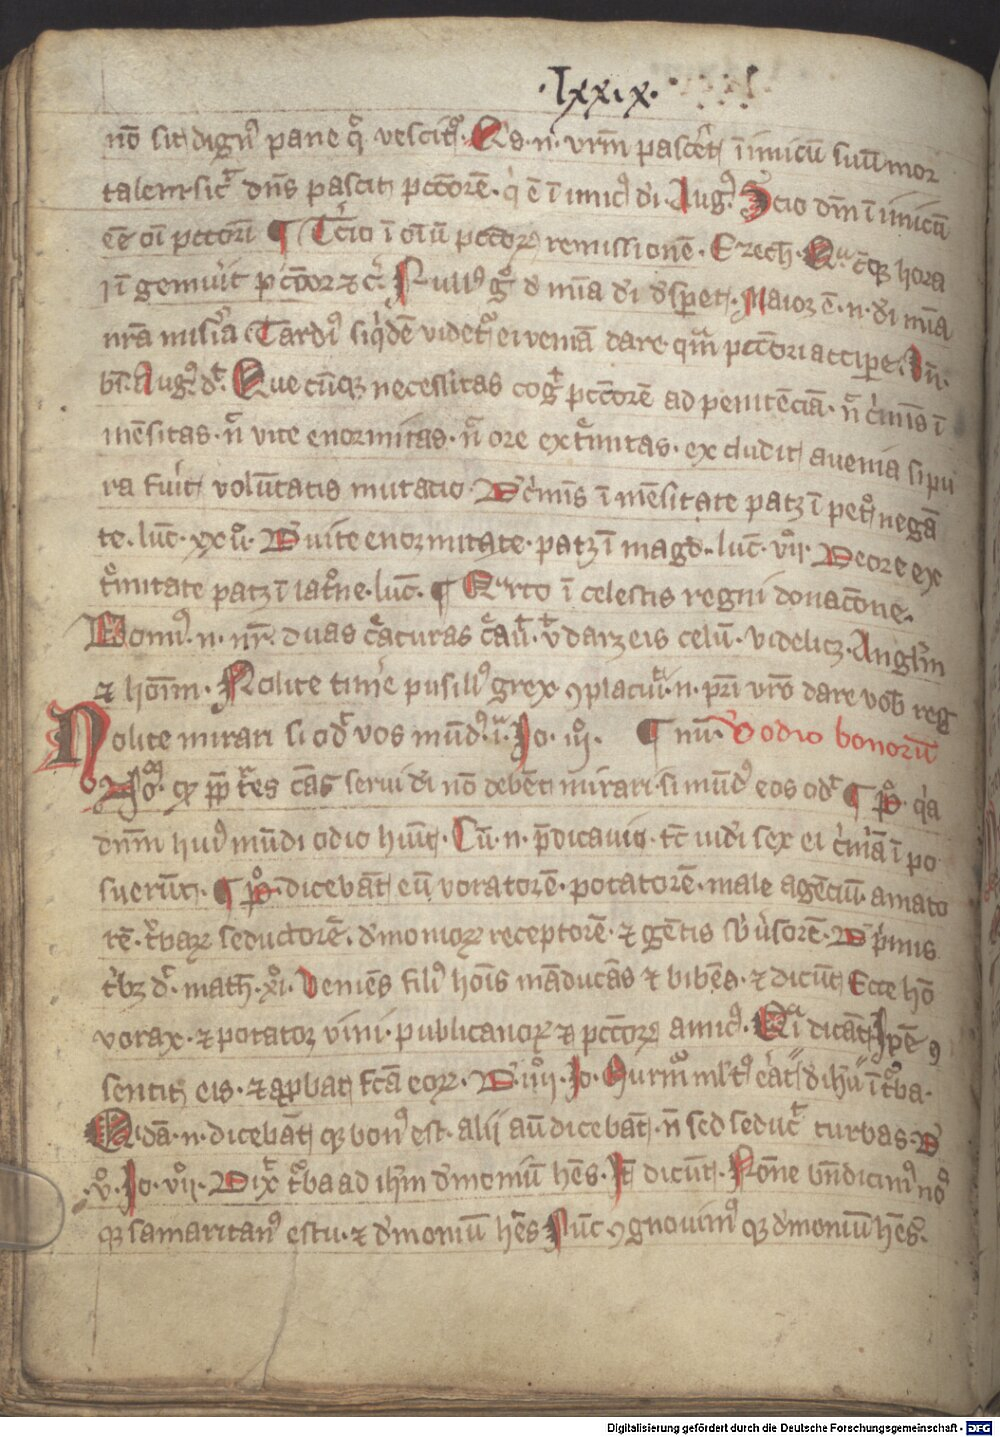 ·lxxix·
nō sit dignꝰ pane qͦ vescitᷣ. Qs. n. vrm̄ pasceret īimicū suū mor
talem sicͭ dn̄s pascit pccōrē. qͥ ē īimicꝰ dī Augꝰ. Scio dm̄ īimicū
eē oī pccōri ¶ Tercio ī oīū pccōꝝ remissionē. Ezech. Quacūqꝫ hora
īgemuit pccōr ⁊ c̄. Nullꝰ gͦ d mīa dī dsperet. Maior ē. n. dī mīa
nrā misīa Tardiꝰ siqͥdē videtᷣ ei veniā dare qͣm pccōri accipere. Jn̄.
bī. Augꝰ. dt. Que cūqꝫ necessitas cogͭ pccōrē ad penitēciā. nͨ cͥmīs ī
mēsitas. nͨ vite enormitas. nͨ ore extͥmitas. excludit a venia si pu
ra fuit volūtatis mutacio. D cͥmīs īmēsitate patꝫ ī petͦ negā
te. luc̄. xxii. D vite enormitate. patꝫ ī magd. luc̄. vii. De ore ex
tͥmitate patꝫ ī latͦne. luc̄. ¶ Qͣrto ī celestis regni donacōne.
Domꝰ. n. nr̄. duas cͤaturas cͤauͭ. vͭ darꝫ eis celū. videlicꝫ. Angl̄m
⁊ hoīm. Nolite timͤe pusillꝰ grex ꝯplacuͭ. n. pr̄i vr̄o dare vob̄ reg
Nolite mirari si odͭ vos mūdꝰ. i. Jo. iii. ¶ nū. D odio bonorū
No. qꝫ ppͭ tͤs cās serui dī nō debēt mirari. si mūdꝰ eos odͭ ¶ pͦ. qͥa
dnm̄ huiꝰ mūdi odio huīt. Cū. n. p̄dicauit. tc̄ iudī sex ei cͥmīa ī po
suerūt. ¶ pͦ. dicebāt eū voratorē. potatorē. male agēciū. amato
rē. tᷣbaꝝ seductorē. dmonioꝝ receptorē. ⁊ gētis sb̄uͥsorē. D pͥmis
tͥbꝫ dͭ. math. xi. Veniēs filiꝰ hoīs māducās ⁊ bibēs. ⁊ dicūt Ecce hō
vorax. ⁊ potator vini. publicanoꝝ ⁊ pccōꝝ amicꝰ. Qͣi dicāt Ip̄e ꝯ
sentit eis. ⁊ apͦbat fcā eoꝝ. D. iiii. Jo. Murmͣ mltꝰ eͣat d ihu ī tᷣba.
Qͥdā. n. dicebāt qꝫ bonꝰ est. alii aū dicebāt. nō sed seducͭ turbas. D
vͦ. Jo. vii. Dixͭ tᷣba ad ihm̄ dmoniū hēs. It̄ dicūt. Nōne bn̄ dicimꝰ noͣ
qꝫ samaritanꝰ es tu. ⁊ dmoniū hēs Nūc ꝯgnouimꝰ qꝫ dmoniū hēs.
Digitalisierung gefördert durch die Deutsche Forschungsgemeinschaft - DFG